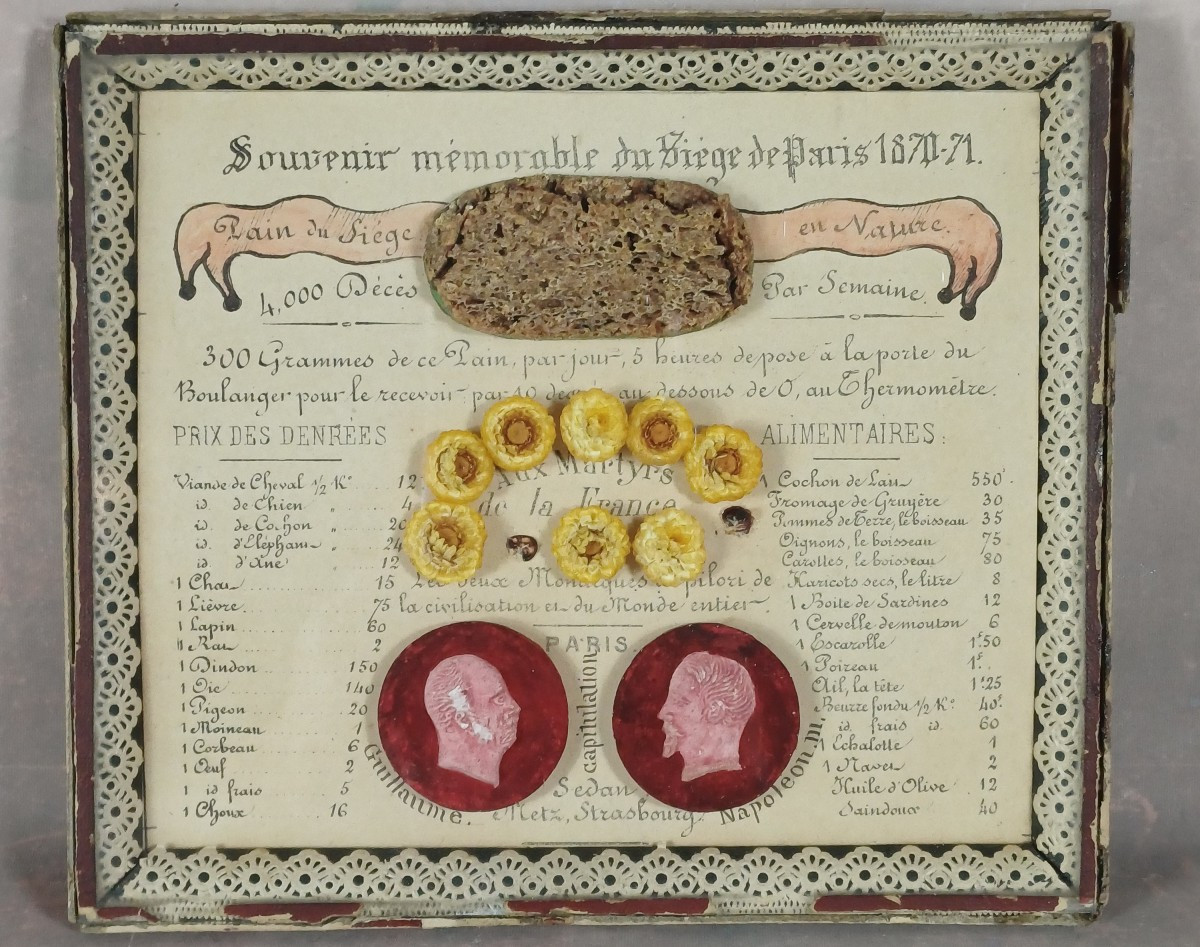 Souvenir mémorable du Siège de Paris 1870-71.
Pain du Siège en Nature.
4,000 Décès Par Semaine.
300 Grammes de ce Pain, par jour, 5 heures de pose à la porte du
Boulanger pour le recevoir par 10 au dessous de 0, au Thermomètre.
PRIX DES DENRÉES
ALIMENTAIRES:
Aux Martyrs
de la France
Viande de Cheval ½ K° 12
id. de Chien " 4
id. de Cochon " 20
id. d'Elephant " 24
id. d'Ane " 12
1 Chat 15
1 Lièvre 75
1 Lapin 60
1 Rat 2
1 Dindon 150
1 Oie 140
1 Pigeon 20
1 Moineau 1
1 Corbeau 6
1 Œuf 2
1 id frais 5
1 Choux 16
1 Cochon de Lait 550f
Fromage de Gruyère 30
Pommes de Terre, le boisseau 35
Oignons, le boisseau 75
Carottes, le boisseau 80
Haricots secs, le litre 8
1 Boite de Sardines 12
1 Cervelle de mouton 6
1 Escarolle 1f50
1 Poireau 1f.
Ail, la tête 1f25
Beurre fondu ½ K° 40f
id frais id. 60
1 Echalotte 1
1 Navet 2
Huile d'Olive 12
Saindoux 40
Les deux Monarques pilori de
la civilisation et du Monde entier.
PARIS.
capitulation
Guillaume.
Napoléon III.
Sedan
Metz, Strasbourg.